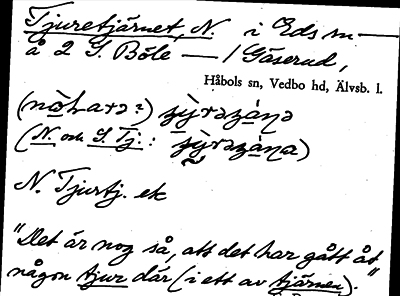 Tjuretjärnet, N. i Eds sn —
å 2 S. Böle — / Gäserud,
Håbols sn, Vedbo hd, Älvsb. l.
(nòharə?)
(N. och S. Tj.:
N. Tjurtj. ek
"Det är nog så, att det har gått åt
någon tjur där (i ett av tjärnen)."